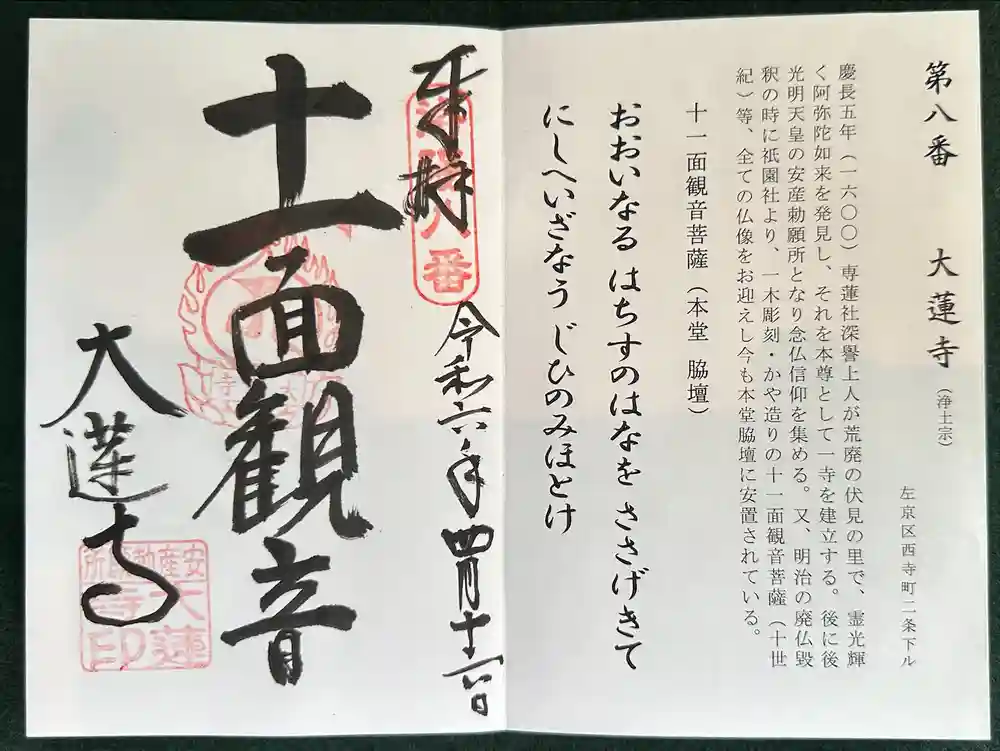 第八番 大蓮寺(浄土宗)
左京区西寺町二条下ル
慶長五年(一六〇〇)専蓮社深譽上人が荒廃の伏見の里で、霊光輝
く阿弥陀如来を発見し、それを本尊として一寺を建立する。後に後
光明天皇の安産勅願所となり念仏信仰を集める。又、明治の廃仏毀
釈の時に祇園社より、一木彫刻・かや造りの十一面観音菩薩(十世
紀)等、全ての仏像をお迎えし今も本堂脇壇に安置されている。
十一面観音菩薩(本堂 脇壇)
おおいなる はちすのはなを ささげきて
にしへいざなう じひのみほとけ
奉拝
洛陽八番
令和六年四月十六日
十一面観音
大蓮寺
安産勅願所
大蓮
寺印